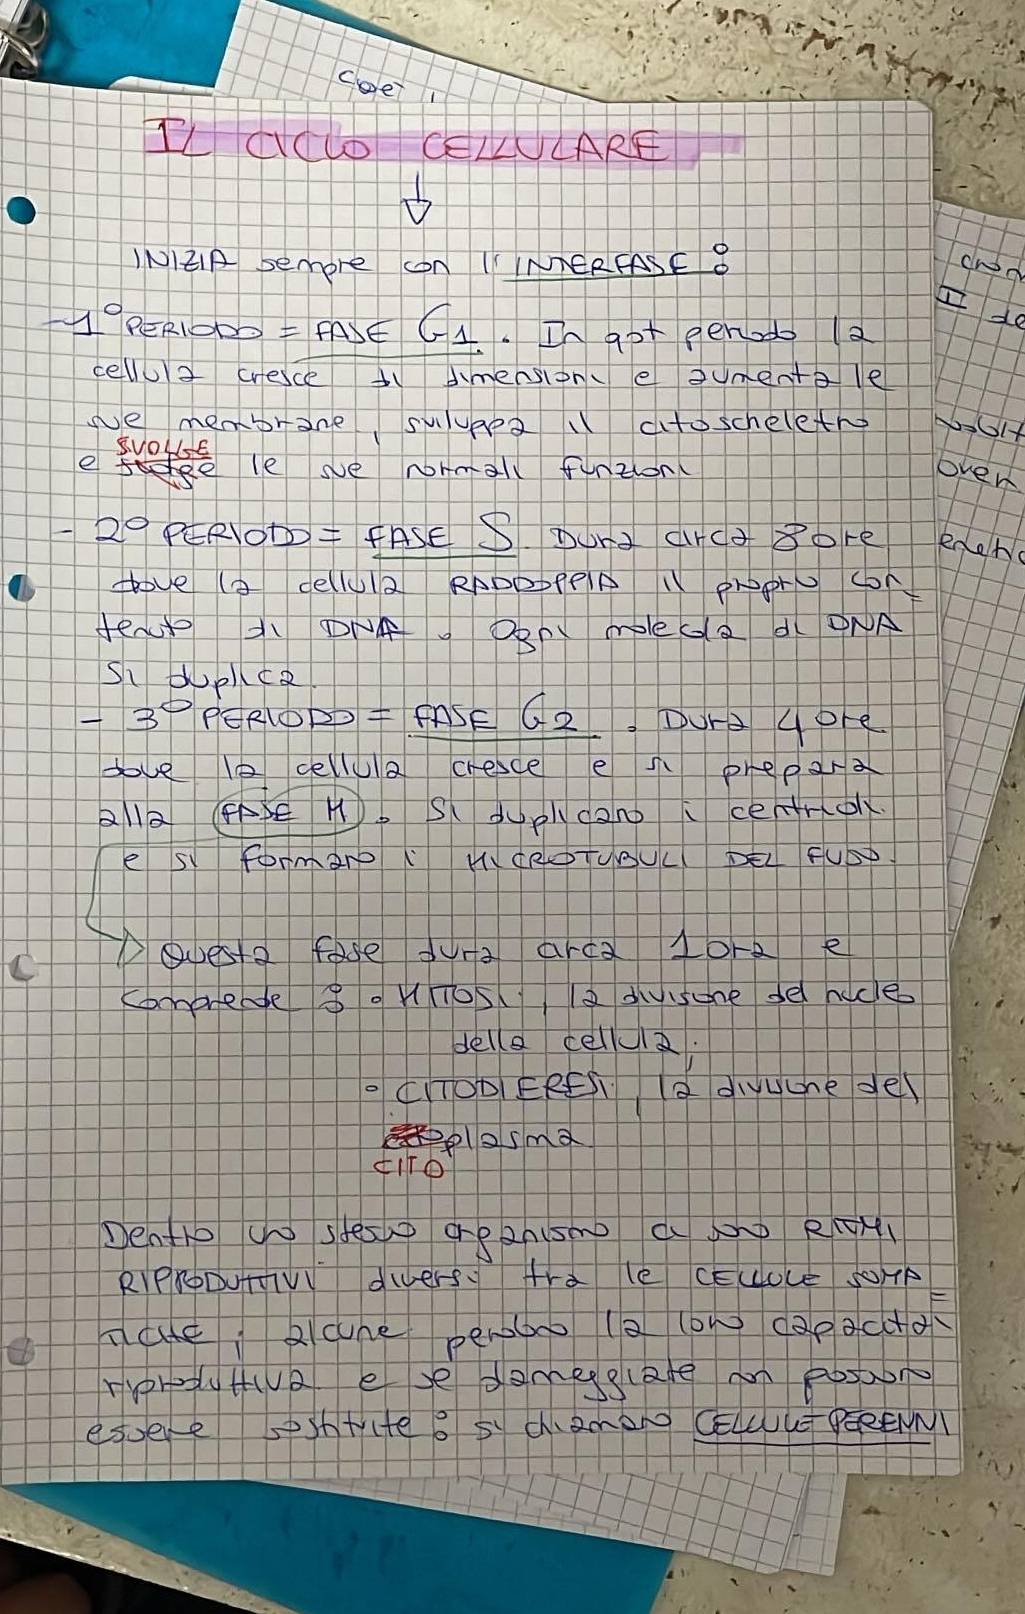 Coe
IL CICLO CELLULARE
INIZIA sempre con l'INTERFASE:
-1° PERIODO = FASE G1. In qst periodo la
cellula cresce di dimensioni e aumenta le
sue membrane, sviluppa il citoscheletro
SVOLGE
e le sue normali funzioni
- 2° PERIODO = FASE S. Dura circa 8 ore
dove la cellula RADDOPPIA il proprio con=
tenuto di DNA. Ogni molecola di DNA
si duplica.
- 3° PERIODO = FASE G2. Dura 4 ore
dove la cellula cresce e si prepara
alla FASE M. Si duplicano i centrioli
e si formano i MICROTUBULI DEL FUSO.
Questa fase dura circa 1 ora e
comprende: • MITOSI, la divisione del nucleo
della cellula;
• CITODIERESI, la divisione del
plasma.
CITO
Dentro uno stesso organismo ci sono RITMI
RIPRODUTTIVI diversi tra le CELLULE SOMA=
TICHE; alcune perdono la loro capacità
riproduttiva e se danneggiate non possono
essere sostituite: si chiamano CELLULE PERENNI
II de